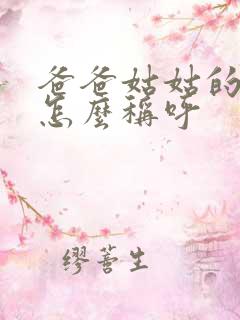 爸爸姑姑的
怎麼稱呼
繆蓍生